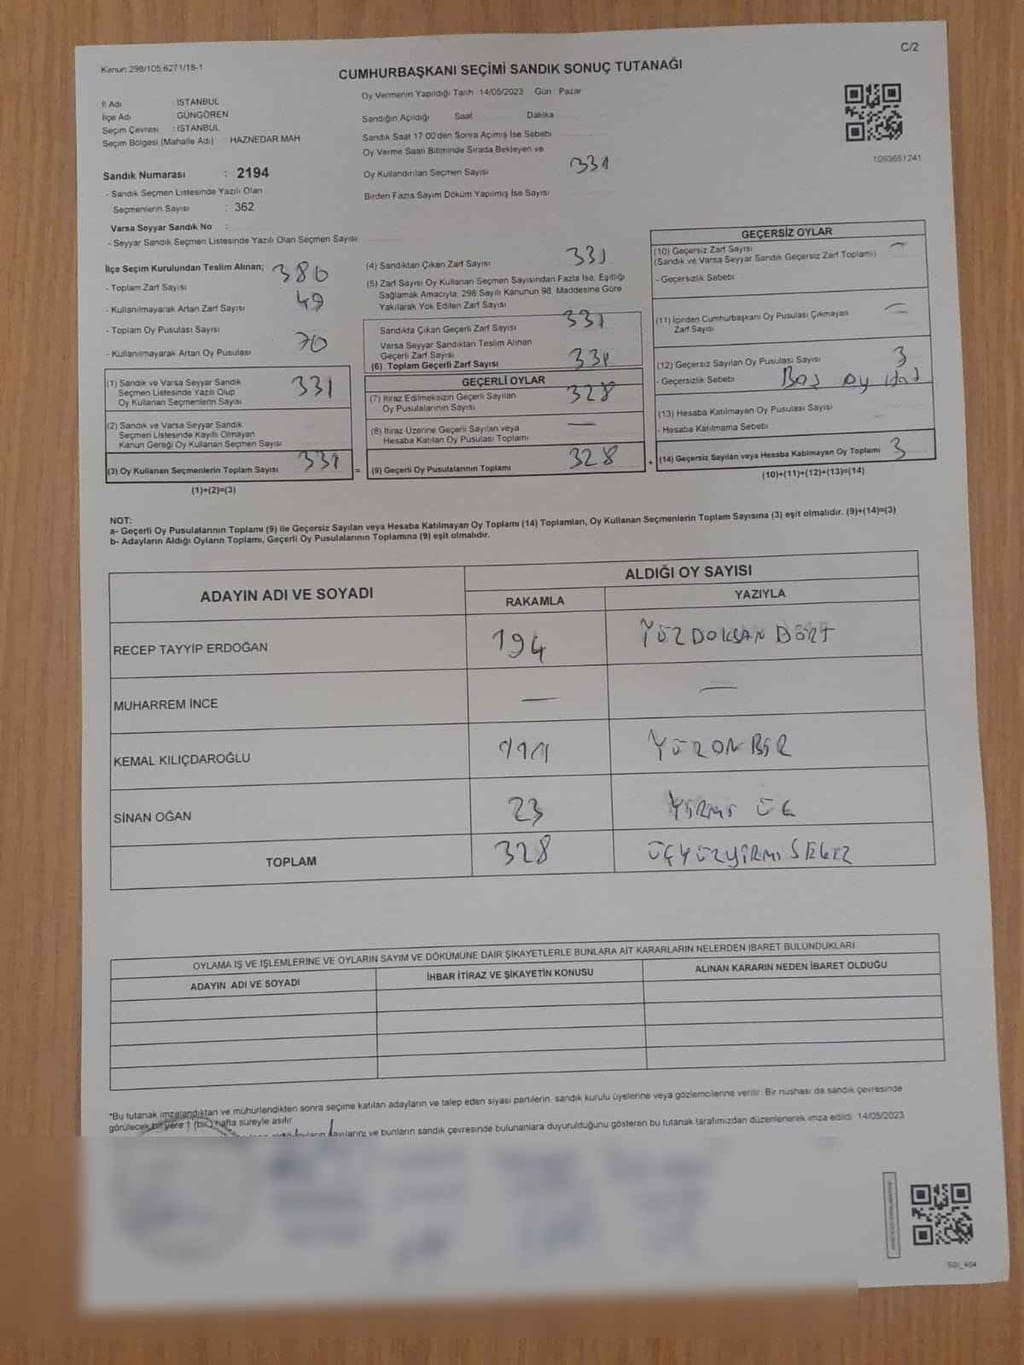 C/2
Kanun:298/105,6271/18-1
CUMHURBAŞKANI SEÇİMİ SANDIK SONUÇ TUTANAĞI
İl Adı : İSTANBUL
İlçe Adı : GÜNGÖREN
Seçim Çevresi : İSTANBUL
Seçim Bölgesi (Mahalle Adı) : HAZNEDAR MAH
Sandık Numarası : 2194
- Sandık Seçmen Listesinde Yazılı Olan
Seçmenlerin Sayısı : 362
Varsa Seyyar Sandık No :
- Seyyar Sandık Seçmen Listesinde Yazılı Olan Seçmen Sayısı
Oy Vermenin Yapıldığı Tarih 14/05/2023 Gün : Pazar
Sandığın Açıldığı Saat Dakika
Sandık Saat 17:00'den Sonra Açılmış İse Sebebi
Oy Verme Saati Bitiminde Sırada Bekleyen ve
Oy Kullandırılan Seçmen Sayısı 331
Birden Fazla Sayım Döküm Yapılmış İse Sayısı
1093651241
İlçe Seçim Kurulundan Teslim Alınan;
- Toplam Zarf Sayısı 380
- Kullanılmayarak Artan Zarf Sayısı 49
- Toplam Oy Pusulası Sayısı
- Kullanılmayarak Artan Oy Pusulası 70
(1) Sandık ve Varsa Seyyar Sandık
Seçmen Listesinde Yazılı Olup
Oy Kullanan Seçmenlerin Sayısı 331
(2) Sandık ve Varsa Seyyar Sandık
Seçmen Listesinde Kayıtlı Olmayan
Kanun Gereği Oy Kullanan Seçmen Sayısı
(3) Oy Kullanan Seçmenlerin Toplam Sayısı 331
(1)+(2)=(3)
(4) Sandıktan Çıkan Zarf Sayısı 331
(5) Zarf Sayısı Oy Kullanan Seçmen Sayısından Fazla İse, Eşitliği
Sağlamak Amacıyla, 298 Sayılı Kanunun 98. Maddesine Göre
Yakılarak Yok Edilen Zarf Sayısı
Sandıkta Çıkan Geçerli Zarf Sayısı 331
Varsa Seyyar Sandıktan Teslim Alınan
Geçerli Zarf Sayısı
(6) Toplam Geçerli Zarf Sayısı 331
GEÇERLİ OYLAR
(7) İtiraz Edilmeksizin Geçerli Sayılan
Oy Pusulalarının Sayısı 328
(8) İtiraz Üzerine Geçerli Sayılan veya
Hesaba Katılan Oy Pusulası Toplamı —
= (9) Geçerli Oy Pusulalarının Toplamı 328
GEÇERSİZ OYLAR
(10) Geçersiz Zarf Sayısı —
(Sandık ve Varsa Seyyar Sandık Geçersiz Zarf Toplamı)
- Geçersizlik Sebebi
(11) İçinden Cumhurbaşkanı Oy Pusulası Çıkmayan
Zarf Sayısı —
(12) Geçersiz Sayılan Oy Pusulası Sayısı 3
- Geçersizlik Sebebi Boş oy
(13) Hesaba Katılmayan Oy Pusulası Sayısı
- Hesaba Katılmama Sebebi
+ (14) Geçersiz Sayılan veya Hesaba Katılmayan Oy Toplamı 3
(10)+(11)+(12)+(13)=(14)
NOT:
a- Geçerli Oy Pusulalarının Toplamı (9) ile Geçersiz Sayılan veya Hesaba Katılmayan Oy Toplamı (14) Toplamları, Oy Kullanan Seçmenlerin Toplam Sayısına (3) eşit olmalıdır. (9)+(14)=(3)
b- Adayların Aldığı Oyların Toplamı, Geçerli Oy Pusulalarının Toplamına (9) eşit olmalıdır.
ADAYIN ADI VE SOYADI ALDIĞI OY SAYISI
RAKAMLA YAZIYLA
RECEP TAYYİP ERDOĞAN 194 YÜZDOKSAN DÖRT
MUHARREM İNCE — —
KEMAL KILIÇDAROĞLU 111 YÜZONBİR
SİNAN OĞAN 23 YİRMİ ÜÇ
TOPLAM 328 ÜÇYÜZYİRMİ SEKİZ
OYLAMA İŞ VE İŞLEMLERİNE VE OYLARIN SAYIM VE DÖKÜMÜNE DAİR ŞİKAYETLERLE BUNLARA AİT KARARLARIN NELERDEN İBARET BULUNDUKLARI
ADAYIN ADI VE SOYADI İHBAR İTİRAZ VE ŞİKAYETİN KONUSU ALINAN KARARIN NEDEN İBARET OLDUĞU
*Bu tutanak imzalandıktan ve mühürlendikten sonra seçime katılan adayların ve talep eden siyasi partilerin, sandık kurulu üyelerine veya gözlemcilerine verilir. Bir nüshası da sandık çevresinde
görülecek bir yere 1 (bir) hafta süreyle asılır.
ve bunların sandık çevresinde bulunanlara duyurulduğunu gösteren bu tutanak tarafımızdan düzenlenerek imza edildi. 14/05/2023